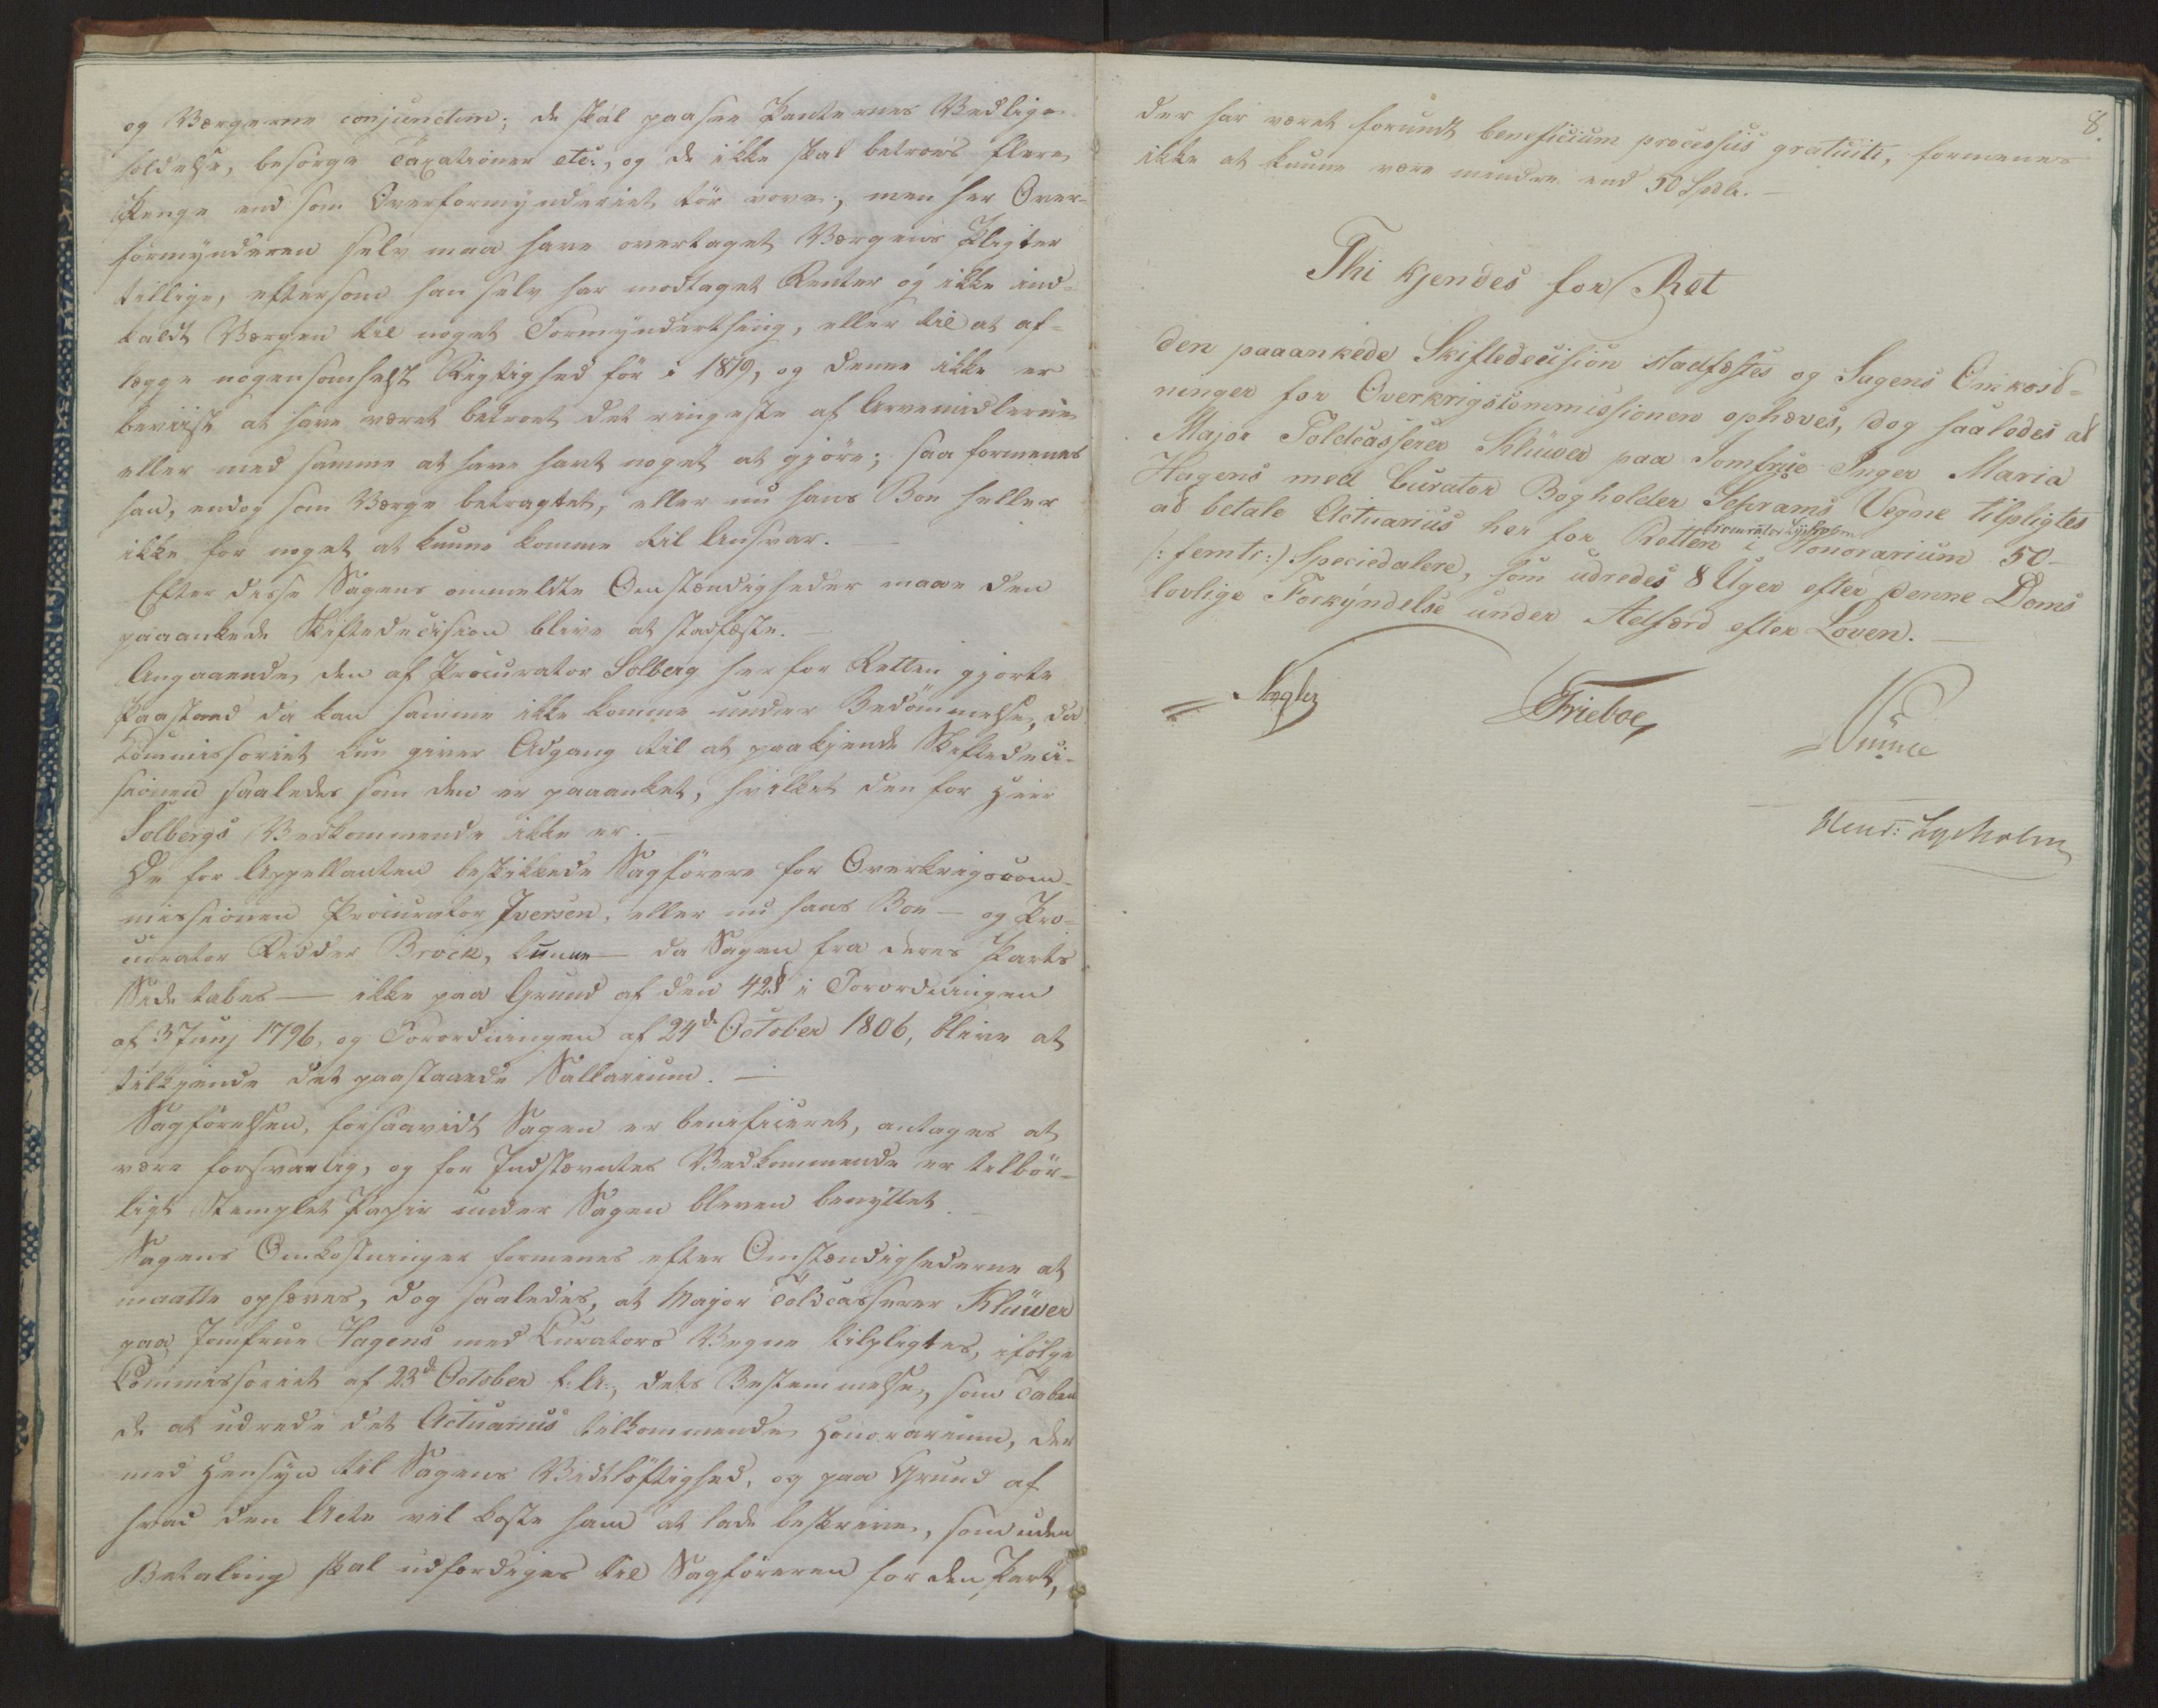 og Værgerne conjunctim; de skal paasee Panternes Vedlige-
holdelse, besørge Taxationer etc:, og de ikke skal betroes flere
Penge end som Overformynderiet tör vove; men her Over-
formynderen selv maa have overtaget Værgens Pligter
tillige, eftersom han selv har modtaget Renter og ikke ind-
kaldt Værgen til noget Formynderthing, eller til at af-
lægge nogensomhelst Rigtighed för i 1819, og denne ikke er
beviist at have været betroet det ringeste af Arvemidlerne
eller med samme at have havt noget at gjöre; saa formenes
han, endog som Værge betragtet, eller nu hans Boe heller
ikke for noget at kunne komme til Ansvar. —
Efter disse Sagens ommeldte Omstændigheder maae den
paaankede Skiftedecision blive at stadfæste. —
Angaaende den af Procurator Solberg her for Retten gjorte
Paastand da kan samme ikke komme under Bedömmelse, da
Commissoriet kun giver Adgang til at paakjende Skiftedeci-
sionen saaledes som den er paaanket, hvilket den for Herr
Solbergs Vedkommende ikke er. —
De for Appellanten beskikkede Sagförere for Overkrigscom-
missionen Procurator Iversen, eller nu hans Boe — og Pro-
curator Ridder Brock, kunne — da Sagen fra deres Parts
Side tabes — ikke paa Grund af den 42§ i Forordningen
af 3 Junj 1796, og Forordningen af 24de October 1806, blive at
tilkjende det paastaaede Sallarium. —
Sagförelsen, forsaavidt Sagen er beneficeret, antages at
være forsvarlig, og for Indstævntes Vedkommende er tilbör-
ligt Stemplet Papir under Sagen bleven benyttet. —
Sagens Omkostninger formenes efter Omstændighederne at
maatte ophæves, dog saaledes, at Major Toldcasserer Klüwer
paa Jomfrue Hagens med Curators Vegne tilpligtes, ifølge
Commissoriet af 23de October f: A:, dets Bestemmelse, som Taben
de at udrede det Actuarius tilkommende Honorarium, der
med Hensyn til Sagens Vidtlöftighed, og paa Grund af
hvad den Acte vil koste ham at lade beskrive, som uden
Betaling skal udfærdiges til Sagföreren for den Part,
8.
der har været forundt beneficium processus gratuiti, formenes
ikke at kunne være mindre end 50 Spdlr. —
Thi kjendes for Ret
den paaankede Skiftedecision stadfæstes og Sagens Omkost-
ninger for Overkrigscommissionen ophæves, dog saaledes at
Major Toldcasserer Klüwer paa Jomfrue Inger Maria
Hagens med Curator Bogholder Vegne tilpligtes
at betale Actuarius her for Retten Procurator Lysholm i Honorarium 50 —
/: femti :/ Speciedalere, som udredes 8 Uger efter denne Doms
lovlige Forkyndelse under Adfærd efter Loven. —
Angler
Frieboe
Hend: Lysholm